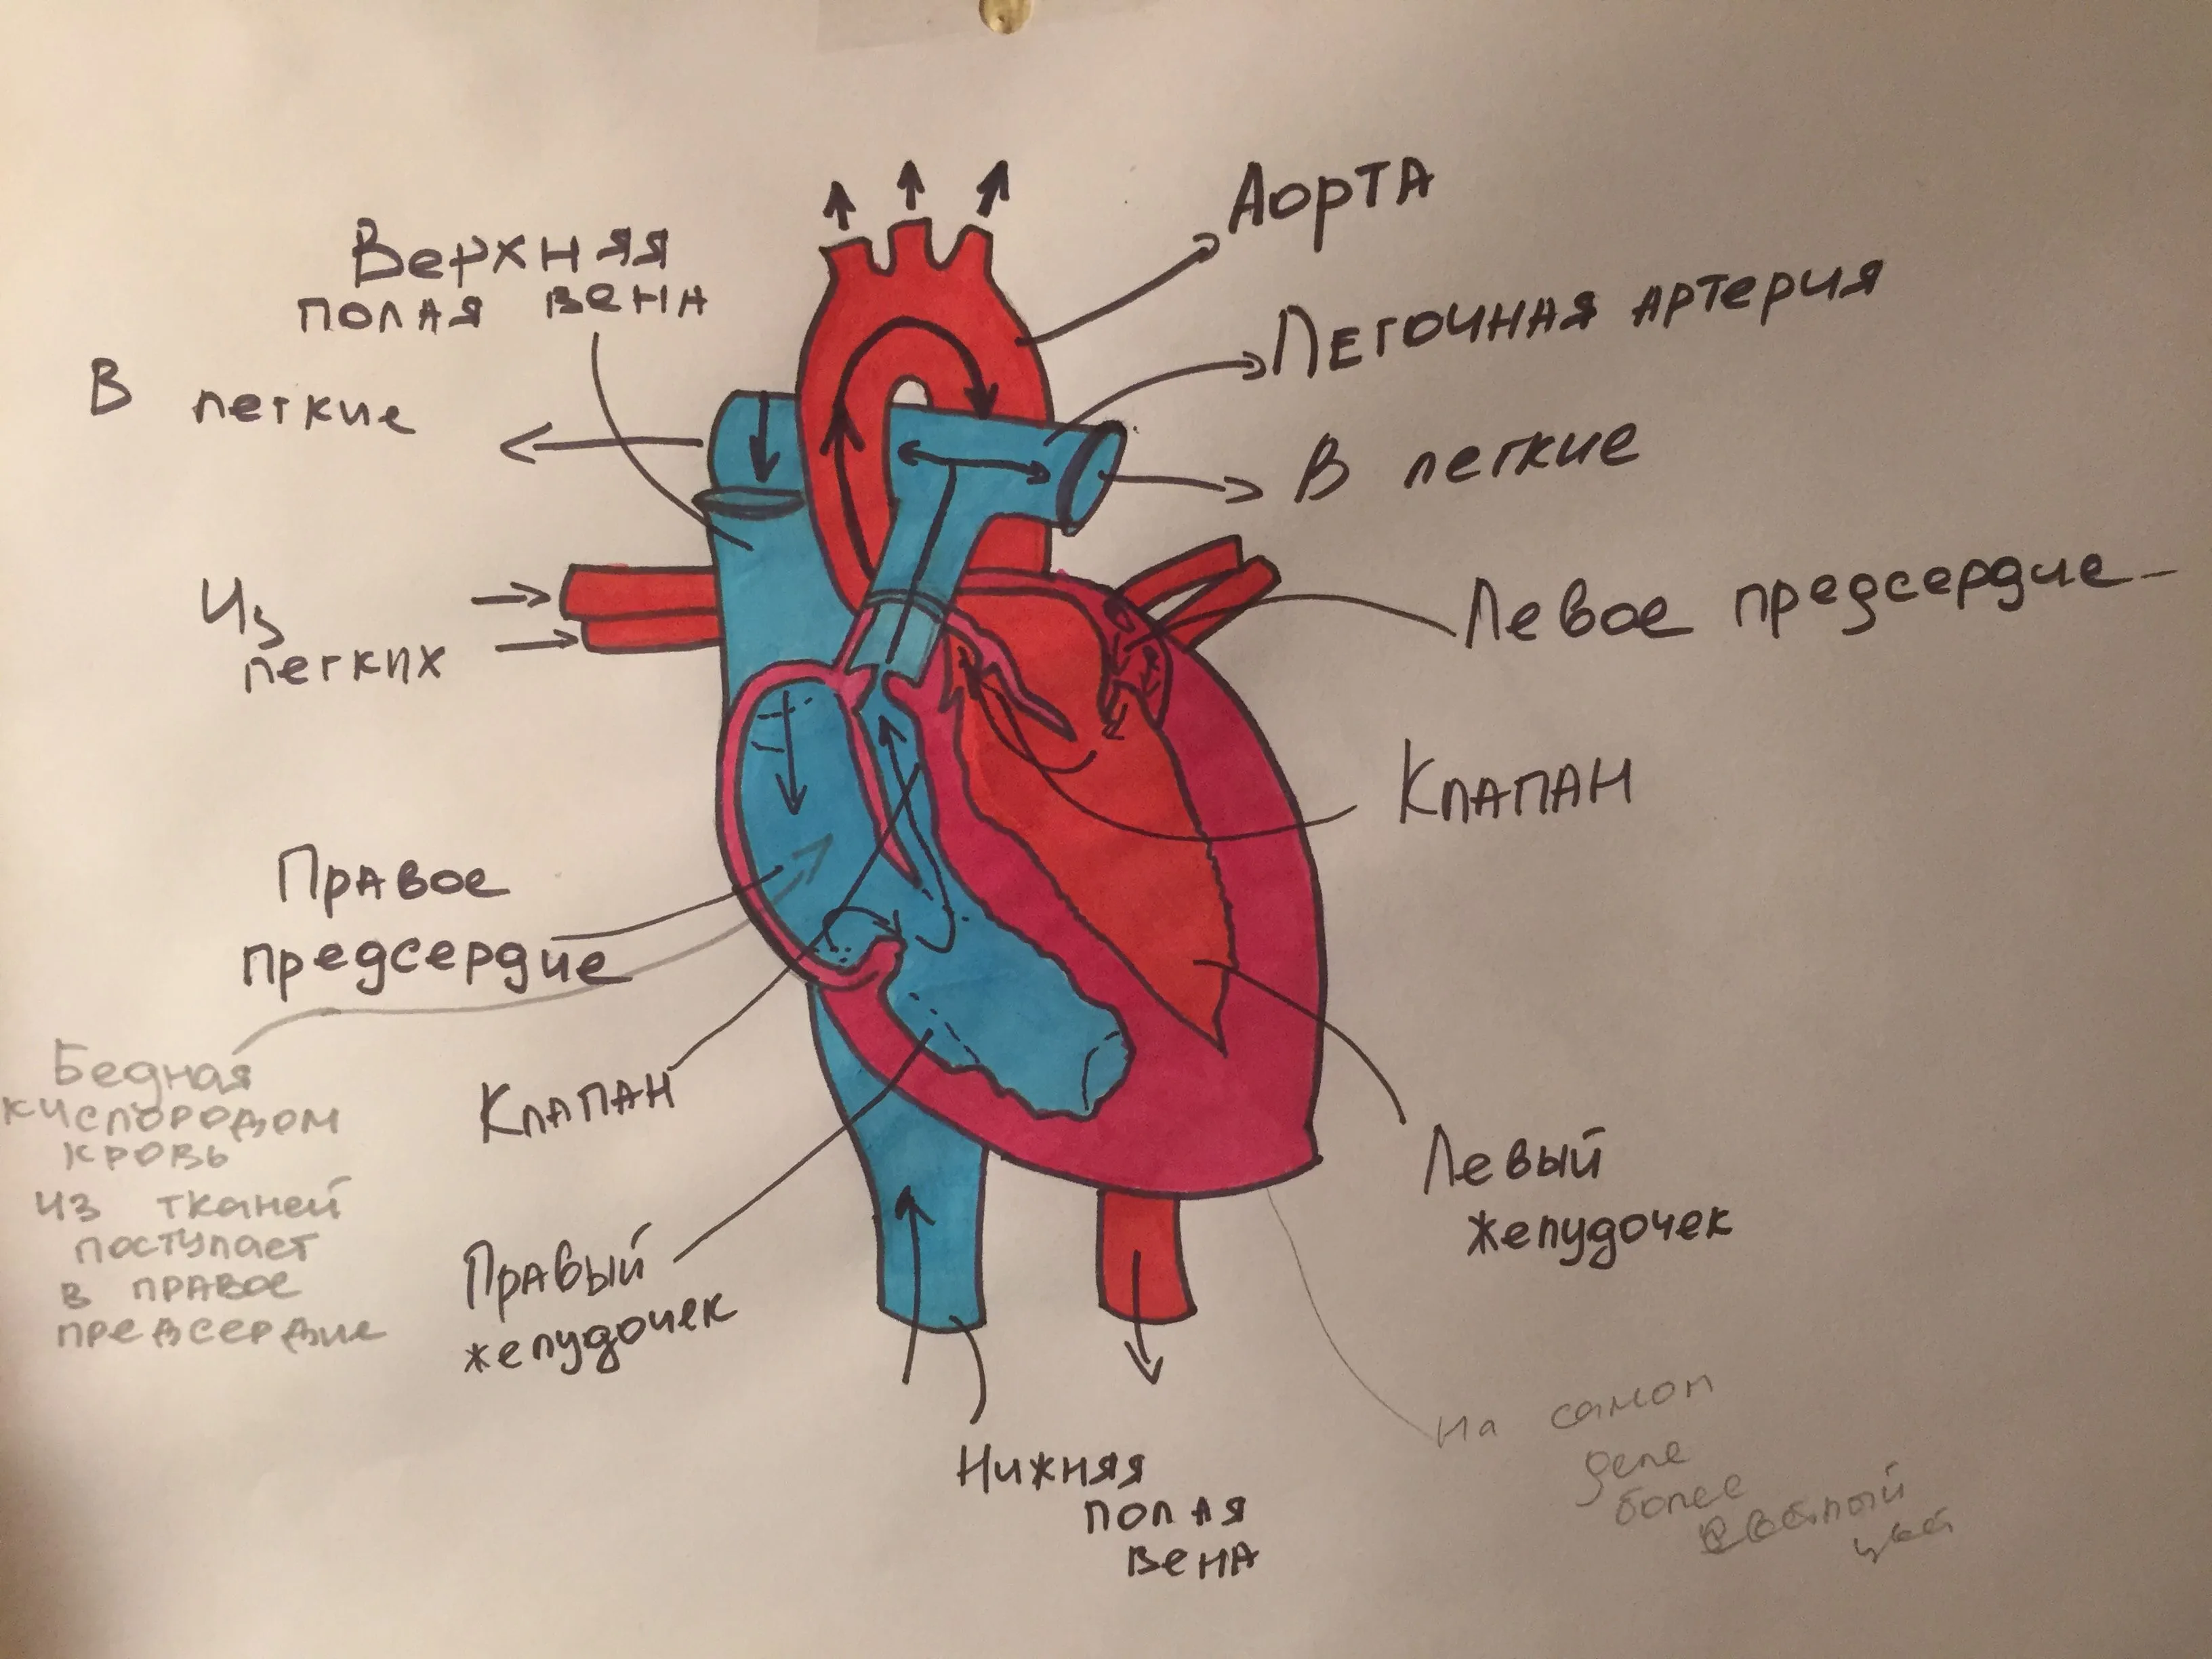 Аорта
Верхняя
полая вена
Легочная артерия
В легкие
В легкие
Из
легких
Левое предсердие
Клапан
Правое
предсердие
Бедная
кислородом
кровь
из тканей
поступает
в правое
предсердие
Клапан
Левый
желудочек
Правый
желудочек
Нижняя
полая
вена
На самом
деле
более
светлый
цвет